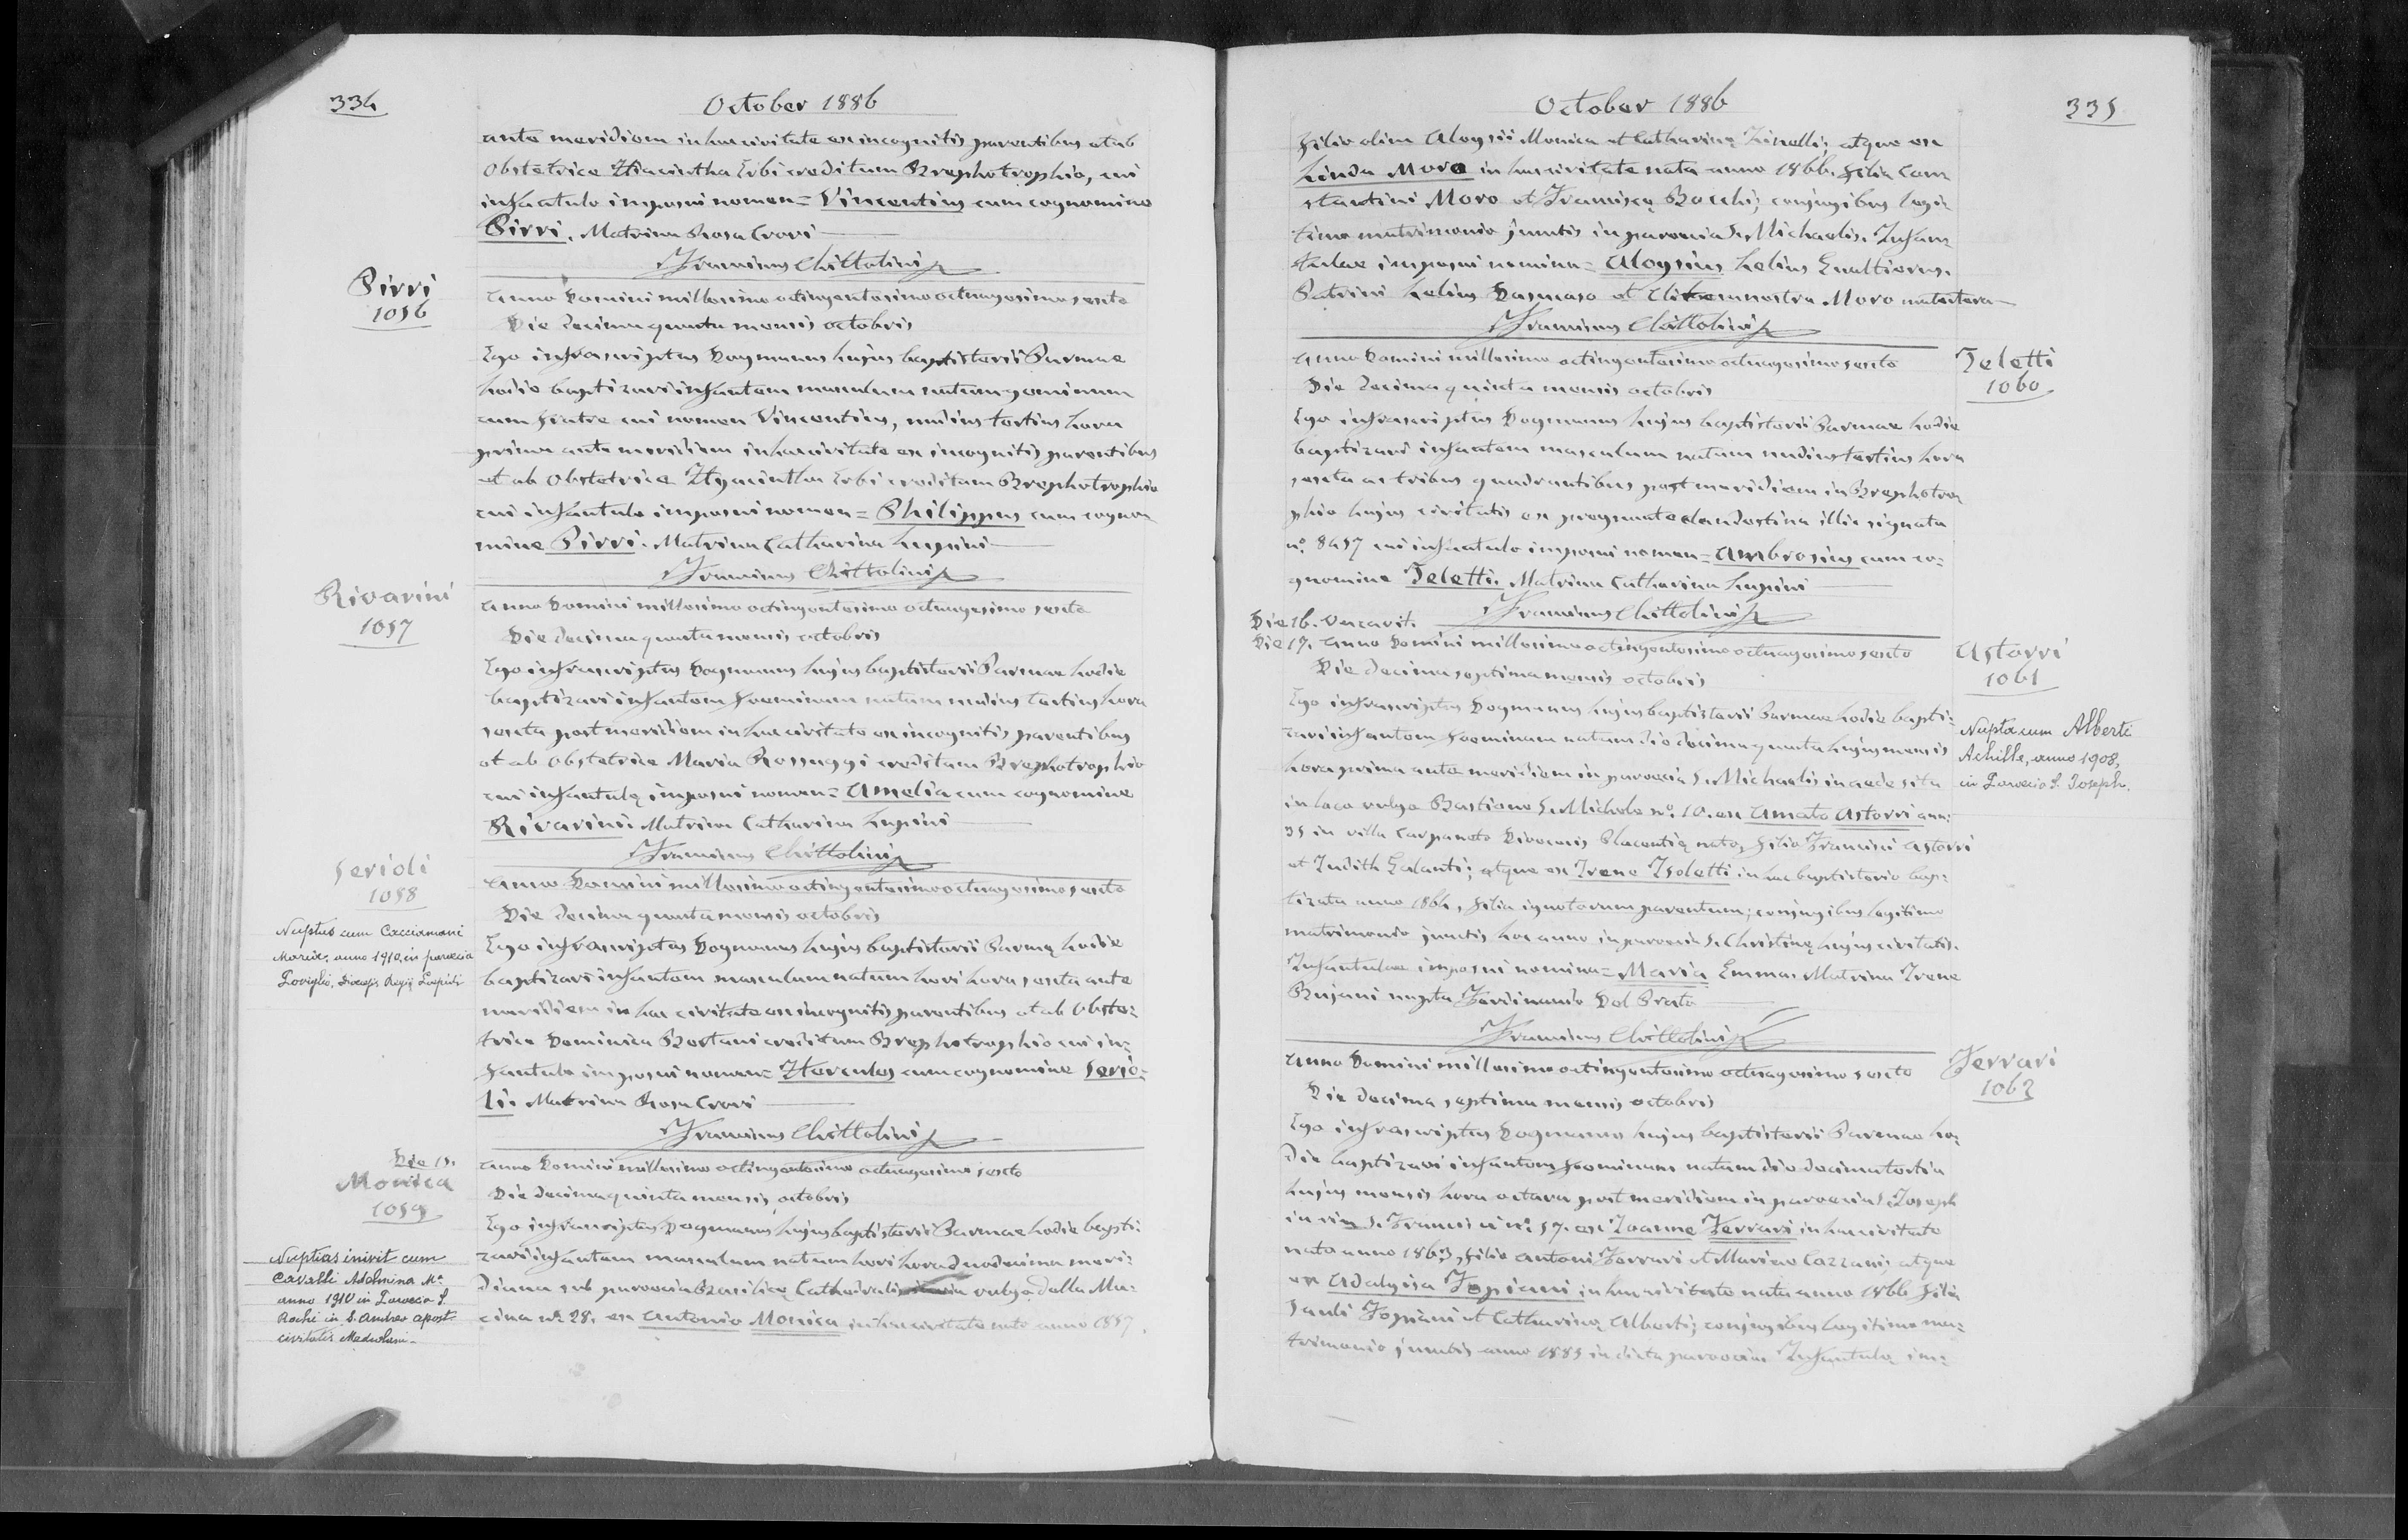 334
October 1886
ante meridiem in hac civitate ex incognitis parentibus et ab
Obstetrice Hiacintha Erbi creditum Brephotrophio, cui
infantulo imposui nomen = Vincentius cum cognomine
Pirri. Matrina Rosa Crovi
Franciscus Chittolini
Pirri
1056
Anno Domini millesimo octingentesimo octuagesimo sexto
Die decimaquarta mensis octobris
Ego infrascriptus Dogmanus hujus baptisterii Parmae
hodie baptizavi infantem masculum natum geminum
cum fratre cui nomen Vincentius, nudius tertius hora
prima ante meridiem in hac civitate ex incognitis parentibus
et ab Obstetrice Hyacintha Erbi creditum Brephotrophio
cui infantulo imposui nomen = Philippus cum cogno=
mine Pirri. Matrina Catharina Lupini
Franciscus Chittolini
Rivarini
1057
Anno Domini millesimo octingentesimo octuagesimo sexto
Die decimaquarta mensis octobris
Ego infrascriptus Dogmanus hujus baptisterii Parmae hodie
baptizavi infantem foeminam natam nudius tertius hora
sexta post meridiem in hac civitate ex incognitis parentibus
et ab Obstetrice Maria Rossuggi creditam Brephotrophio
cui infantulę imposui nomen = Amelia cum cognomine
Rivarini. Matrina Catharina Lupini
Franciscus Chittolini
Serioli
1058
Nuptus cum Cacciamani
Maria, anno 1910, in paroecia
Poviglio, Diocesis Regii Lepidi
Anno Domini millesimo octingentesimo octuagesimo sexto
Die decimaquarta mensis octobris
Ego infrascriptus Dogmanus hujus baptisterii Parmę hodie
baptizavi infantem masculum natum heri hora sexta ante
meridiem in hac civitate ex incognitis parentibus et ab Obste=
trice Dominica Bertani creditum Brephotrophio cui in=
fantulo imposui nomen = Hercules cum cognomine Serio=
li. Matrina Rosa Crovi
Franciscus Chittolini
Die 15.
Monica
1059
Nuptias inivit cum
Cavalli Adelmina Mª
anno 1910 in Paroecia S.
Rochi in S. Andrea apost.
civitatis Mediolani.
Anno Domini millesimo octingentesimo octuagesimo sexto
Die decimaquinta mensis octobris
Ego infrascriptus Dogmanus hujus baptisterii Parmae hodie bapti=
zavi infantem masculum natum heri hora duodecima meri=
diana sub paroecia Basilicę Cathedralis in via vulgo della Ma=
cina nº 28. ex Antonio Monica in hac civitate nato anno 1857.
October 1886
335
filio olim Aloysii Monica et Catharinę Zinelli; atque ex
Linda Moro in hac civitate nata anno 1866. filia Con=
stantini Moro et Franciscę Bocchi; conjugibus legi=
timo matrimonio junctis in paroecia S. Michaelis. Infan=
tulae imposui nomina = Aloysius Lelius Gualtierus.
Patrini Lelius Dasmaso et Clitemnestra Moro matertera
Franciscus Chittolini
Teletti
1060
Anno Domini millesimo octingentesimo octuagesimo sexto
Die decimaquinta mensis octobris
Ego infrascriptus Dogmanus hujus baptisterii Parmae hodie
baptizavi infantem masculum natum nudius tertius hora
sexta ac tribus quadrantibus post meridiem in Brephotro=
phio hujus civitatis ex pregnante clandestina illic signata
nº 8457 cui infantulo imposui nomen = Ambrosius cum co=
gnomine Teletti. Matrina Catharina Lupini
Franciscus Chittolini
Die 16. Vacavit.
Die 17. Anno Domini millesimo octingentesimo octuagesimo sexto
Astorri
1061
Nupta cum Alberti
Achille, anno 1908,
in Paroecia S. Joseph.
Die decimaseptima mensis octobris
Ego infrascriptus Dogmanus hujus baptisterii Parmae hodie bapti=
zavi infantem foeminam natam die decimaquarta hujus mensis
hora prima ante meridiem in paroecia S. Michaelis in aede sita
in loco vulgo Bastione S. Michele nº 10. ex Amato Astorri ann:
35 in villa Carpaneto Dioecesis Placentię nato, filio Francisci Astorri
et Judith Galanti; atque ex Irene Isoletti in hac baptisterio bap=
tizata anno 1864, filia ignotorum parentum; conjugibus legitimo
matrimonio junctis hoc anno in paroecia S. Christinę hujus civitatis.
Infantulae imposui nomina = Maria Emma. Matrina Irene
Rujani nupta Ferdinando Del Prato
Franciscus Chittolini
Ferrari
1062
Anno Domini millesimo octingentesimo octuagesimo sexto
Die decima septima mensis octobris
Ego infrascriptus Dogmanus hujus baptisterii Parmae ho=
die baptizavi infantem foeminam natam die decimatertia
hujus mensis hora octava post meridiem in paroecia S. Joseph
in via S. Francisci nº 57. ex Joanne Ferrari in hac civitate
nato anno 1863, filio Antoni Ferrari et Mariae Cazzani; atque
ex Adalgisa Fopiani in hac civitate nata anno 1866 filia
Pauli Fopiani et Catharinę Alberti; conjugibus legitimo ma=
trimonio junctis anno 1885 in dicta paroecia. Infantulę im=